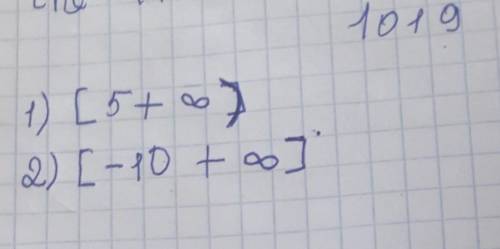 1019
1) [5 + ∞)
2) [-10 + ∞]